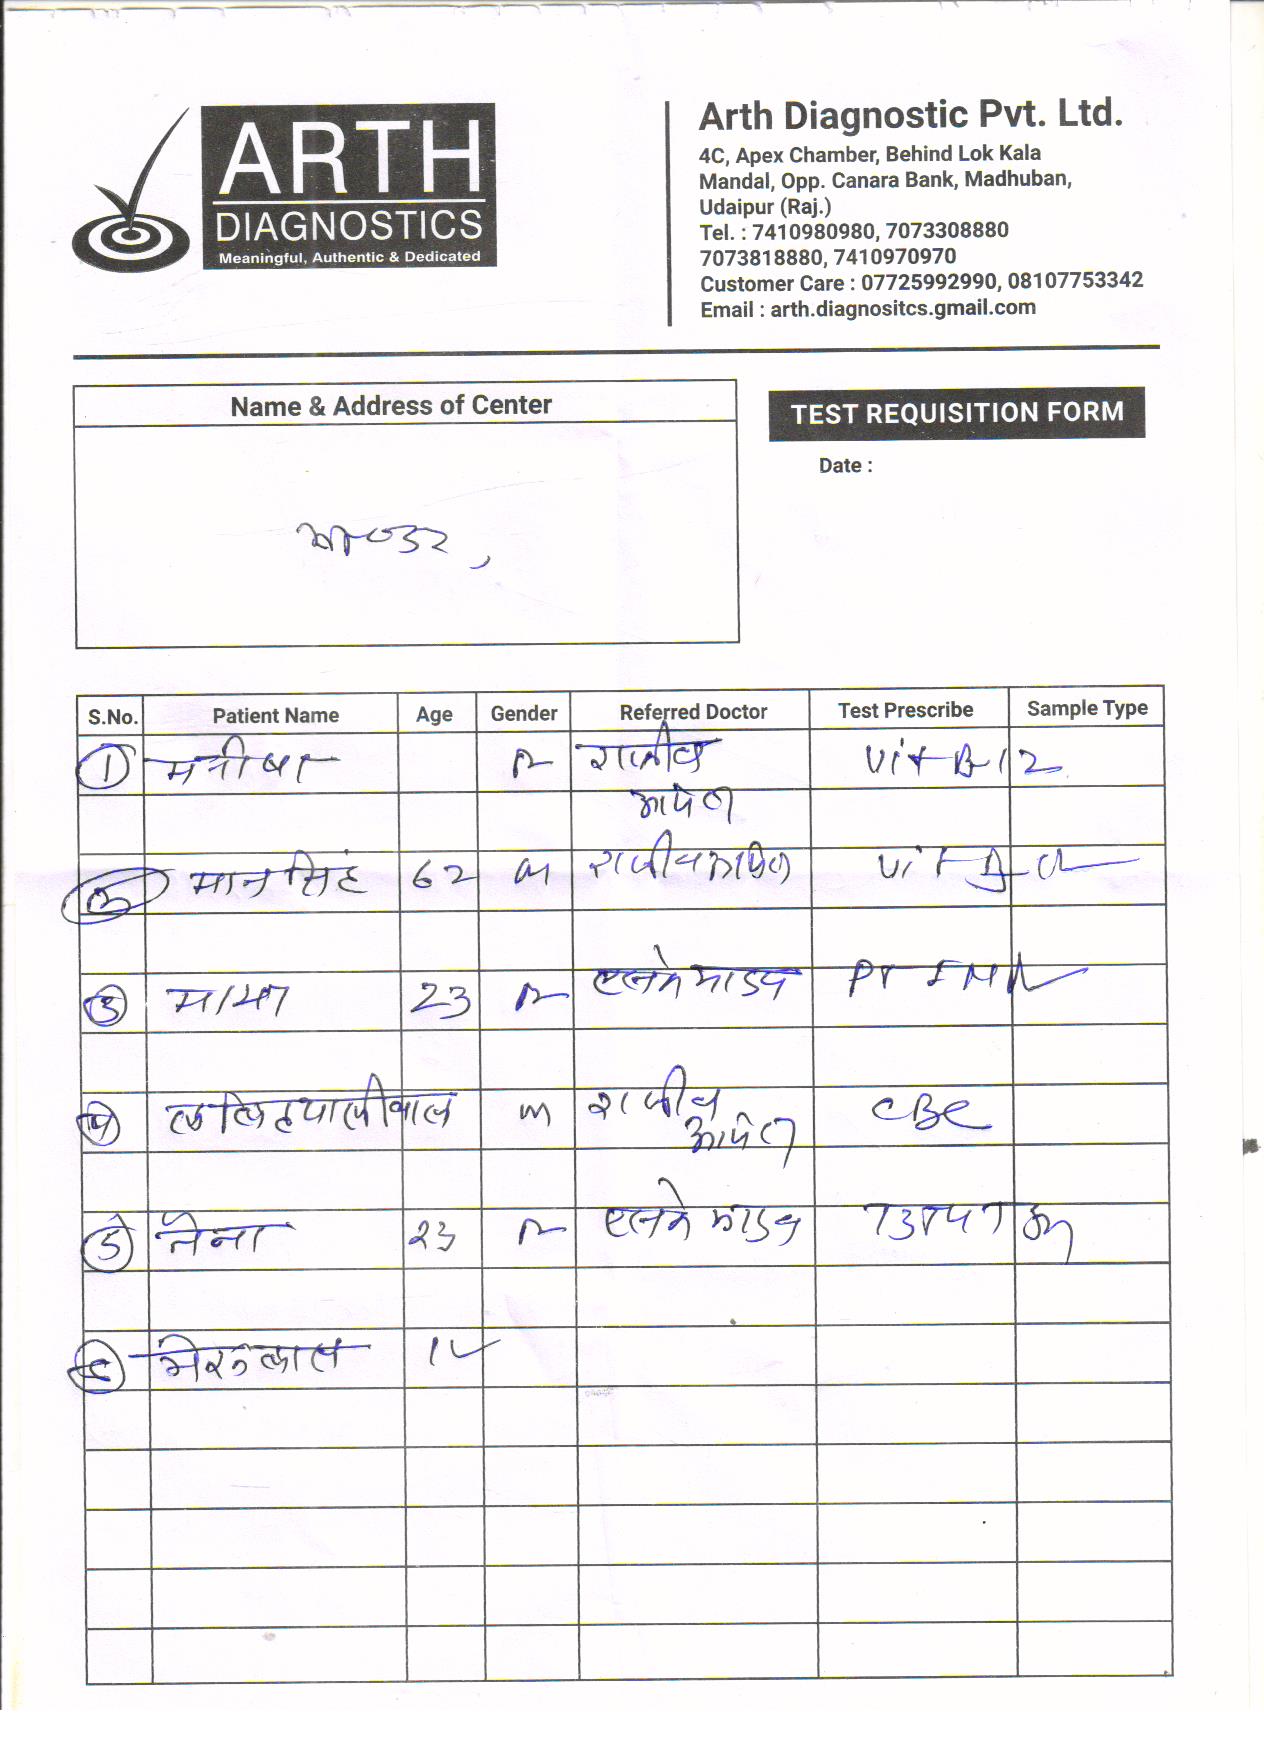 ARTH
DIAGNOSTICS
Meaningful, Authentic & Dedicated
Arth Diagnostic Pvt. Ltd.
4C, Apex Chamber, Behind Lok Kala
Mandal, Opp. Canara Bank, Madhuban,
Udaipur (Raj.)
Tel. : 7410980980, 7073308880
7073818880, 7410970970
Customer Care : 07725992990, 08107753342
Email : arth.diagnositcs.gmail.com
Name & Address of Center
TEST REQUISITION FORM
Date :
S.No. Patient Name Age Gender Referred Doctor Test Prescribe Sample Type
1 मनीषा राजीव Vit B12
आमेटा
मानसिंह 62 M राजीव Vit D
3 माया 23 PT INR
ललित पालीवाल M राजीव CBC
आमेटा
5 नैना 23
भेरूलाल